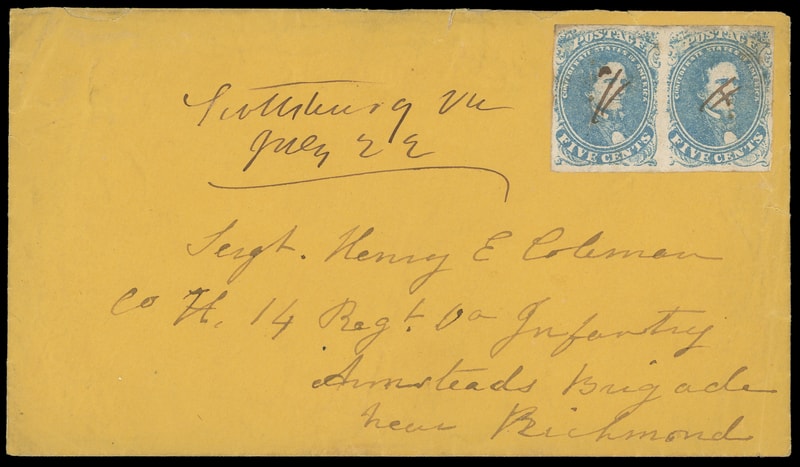 POSTAGE POSTAGE
CONFEDERATE STATES OF AMERICA CONFEDERATE STATES OF AMERICA
FIVE CENTS FIVE CENTS
Scottsburg Va
July 22
Sergt. Henry E Coleman
Co H, 14 Regt. Va Infantry
Armsteads Brigade
near Richmond